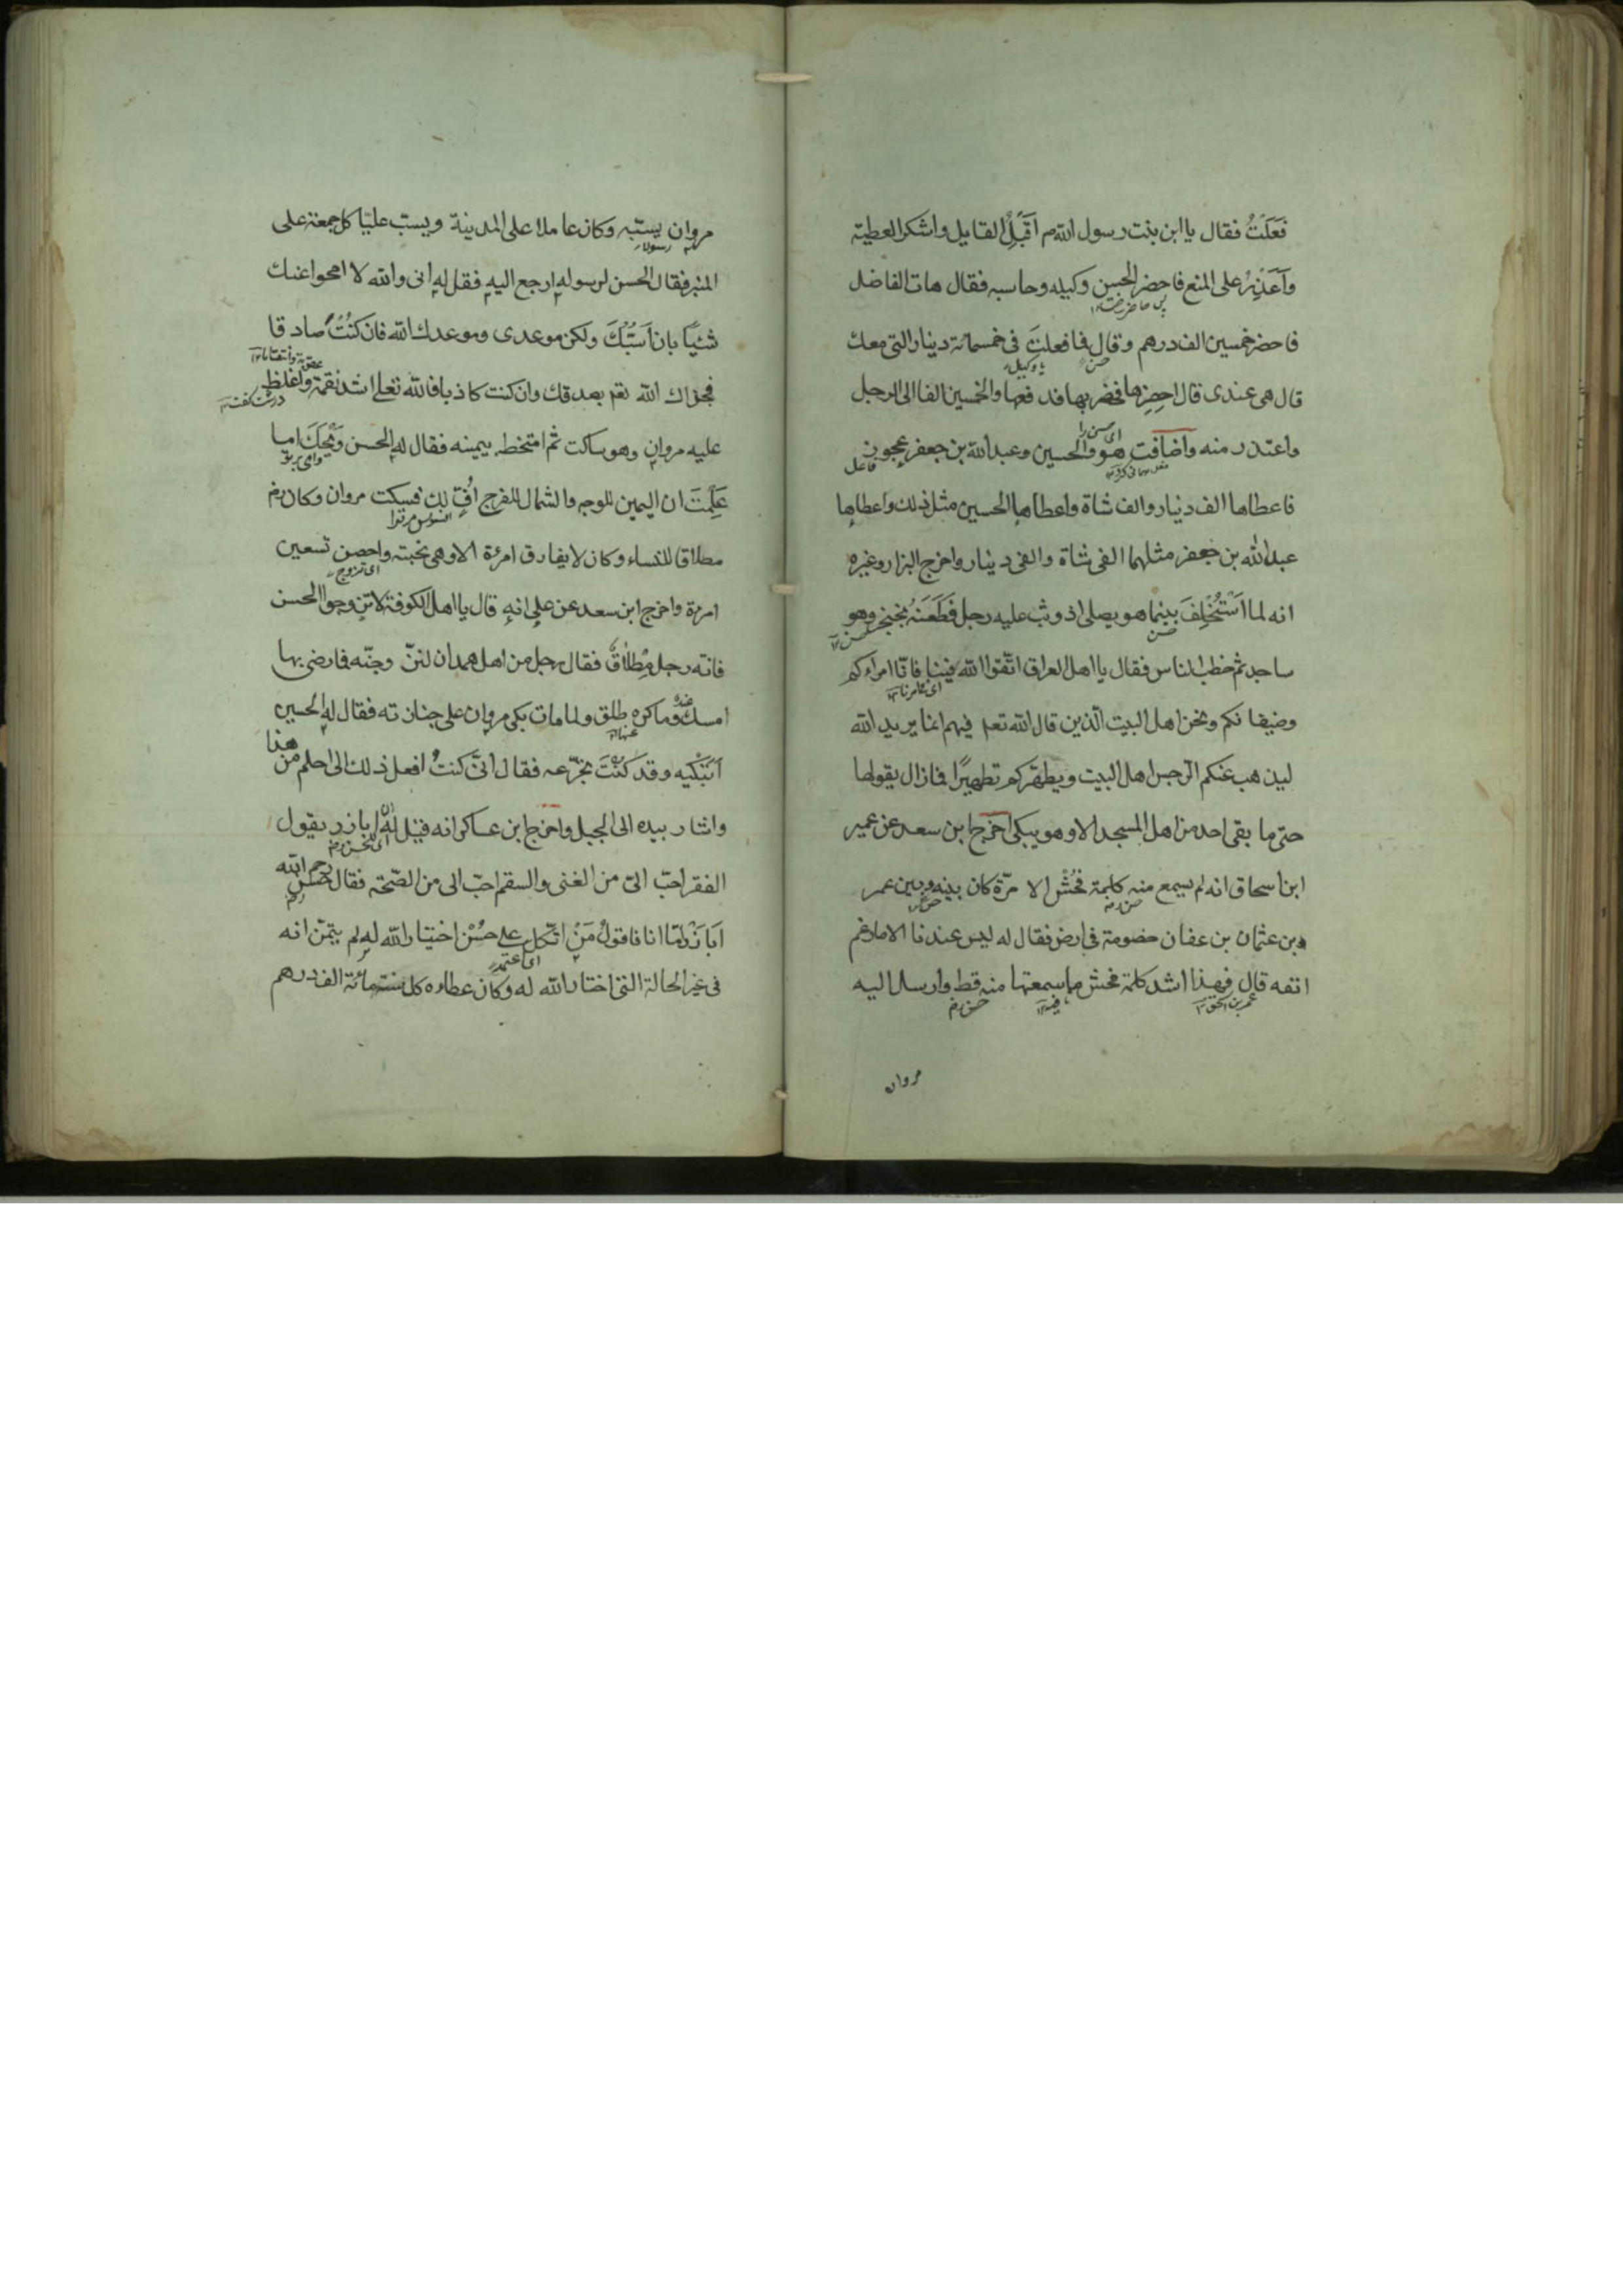 فَعَلَتُ فقال يا ابن بنت رسول الله م اَقْبَلُ القليل واشكر العطية
وَاَعْذِرُ على المنع فاحضر الحسن وكيله وحاسبه فقال هات الفاضل
فاحضر خمسين الف درهم وقال فما فعلتَ فى خمسمائة دينار التى معك
قال هى عندى قال احضِرها فحضر بها فدفعها والخمسين الفا الى الرجل
واعتذر منه واضافت هو والحسين وعبد الله بن جعفر عجوز
فاعطاها الف دينار والف شاة واعطاها الحسين مثل ذلك واعطاها
عبد الله بن جعفر مثلهما الفى شاة والفى دينار واخرج البزار وغيره
انه لما اُسْتُخْلِفَ بينما هو يصلى اذ وثب عليه رجل فَطَعَنَهُ بخنجر وهو
ساجد ثم خطب الناس فقال يا اهل العراق اتّقوا الله فينا فانّا امراءكم
وضيفانكم ونحن اهل البيت الّذين قال الله تعم فيهم انما يريد الله
ليذهب عنكم الرجس اهل البيت ويطهّركم تطهيرًا فمازال يقولها
حتى ما بقى احد من اهل المسجد الا وهو يبكى اخرج ابن سعد عن عمير
ابن اسحاق انه لم يسمع منه كلمة فُحْش الا مرّة كان بينه وبين عمر
وبن عثمان بن عفان خصومة فى ارض فقال له ليس عندنا الا مارغم
انفه قال فهذا اشد كلمة فحش ما سمعتها منه قط وارسل اليه
مروان
مروان يسبّه وكان عاملا على المدينة ويسبّ عليّا كل جمعة على
المنبر فقال الحسن لرسوله ارجع اليه فقل له انى والله لا امحوا عنك
شيئًا بان اَسُبَّكَ ولكن موعدى وموعدك الله فان كنْتُ صادقا
فجزاك الله تعم بصدقك وان كنت كاذبا فالله تعالى اشد نقمة واغلظ
عليه مروان وهو ساكت ثم امتخط بيمينه فقال له الحسن وَيْحَكَ اما
عَلِمْتَ ان اليمين للوجه والشمال للفرج اُفٍّ لك فسكت مروان وكان رض
مطلاقا للنساء وكان لا يفارق امرءة الا وهى تحبته واحصن تسعين
امرءة واخرج ابن سعد عن على انه قال يا اهل الكوفة لا تزوجوا الحسن
فانّه رجل مِطْلاقٌ فقال رجل من اهل همدان لنزوّجنّه فما رضى بها
امسك وما كره طلق ولما مات بكى مروان على جنازته فقال له الحسين
اَتَبْكيه وقد كنْتَ تجرّعه فقال انّى كنتُ افعل ذلك الى احلم من هذا
واشار بيده الى الجبل واخرج ابن عساكر انه قيل له ان اباذر يقول
الفقر احبّ الىّ من الغنى والسقم احبّ الى من الصّحّة فقال رحم الله
اَبَا ذَرٍّ امّا انا فاقولُ مَنْ اتّكل على حُسْن اختيار الله له لم يتمنّ انه
فى غير الحالة التى اختار الله له وكان عطاءه كل سنة مائة الف درهم